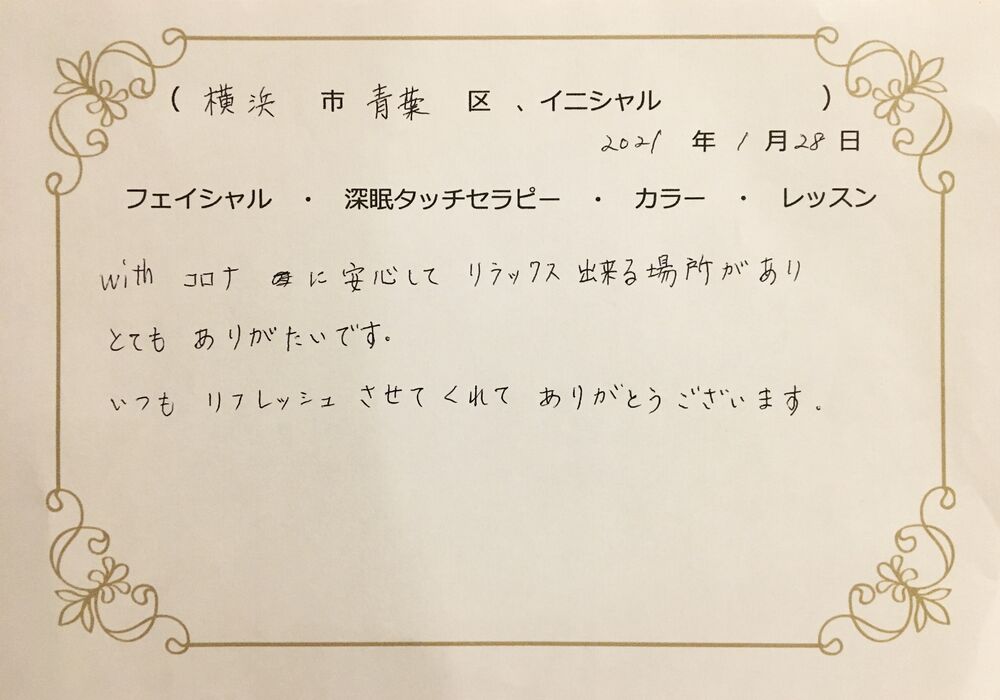 ( 横浜 市 青葉 区 、イニシャル )
2021 年 1 月 28 日
フェイシャル ・ 深眠タッチセラピー ・ カラー ・ レッスン
with コロナ に 安心して リラックス 出来る場所があり
とても ありがたいです。
いつも リフレッシュ させてくれて ありがとうございます。